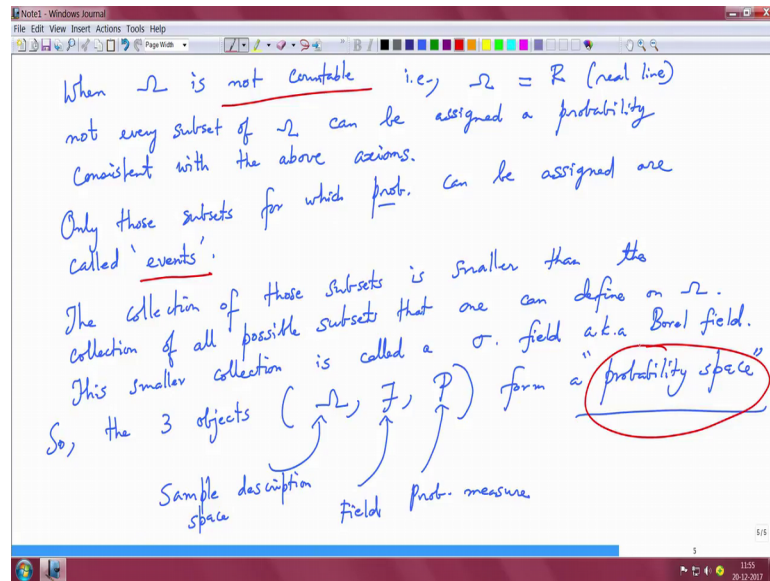 Note1 - Windows Journal
File Edit View Insert Actions Tools Help
Page Width
When Ω is not countable i.e., Ω = R (real line)
not every subset of Ω can be assigned a probability
consistent with the above axioms.
Only those subsets for which prob. can be assigned are
called 'events'.
The collection of those subsets is smaller than the
collection of all possible subsets that one can define on Ω.
This smaller collection is called a σ. field a.k.a Borel field.
So, the 3 objects (Ω, F, P) form a "probability space"
Sample description space
Field
Prob. measure
5/5
5
11:55
20-12-2017